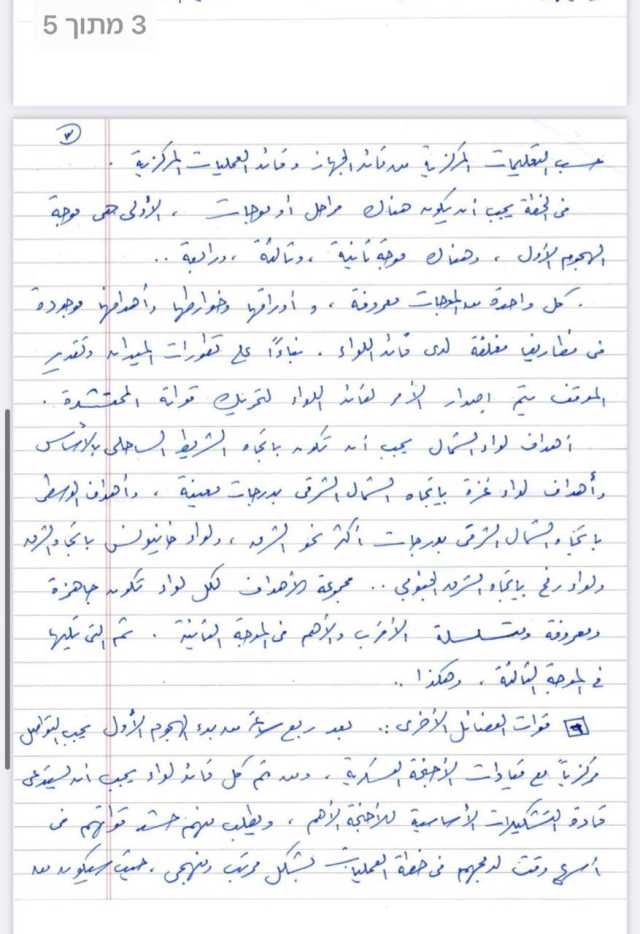 3 מתוך 5
٣
حسب التعليمات المركزية من قائد الجهاز وقائد العمليات المركزية .
في الخطة يجب أن يكون هناك مراحل أو موجات ، الأولى هي موجة
الهجوم الأول ، وهناك موجة ثانية ، وثالثة ، ورابعة ..
. كل واحدة من الموجات معروفة ، و أوراقها وخوارطها وأهدافها موجودة
في مظاريف مغلقة لدى قائد اللواء . بناءًا على تطورات الميدان وتقدير
الموقف يتم إصدار الأمر لقائد اللواء لتحريك قواته المحتشدة .
أهداف لواء الشمال يجب أن تكون باتجاه الشريط الساحلي بالأساس
وأهداف لواء غزة باتجاه الشمال الشرقي بدرجات معينة ، وأهداف الوسطى
باتجاه الشمال الشرقي بدرجات أكثر نحو الشرق ، ولواء خانيونس باتجاه الشرق
ولواء رفح باتجاه الشرق الجنوبي .. مجموعة الأهداف لكل لواء تكون جاهزة
ومعروفة ومتسلسلة الأقرب والأهم في الموجة الثانية . ثم التي تليها
في الموجة الثالثة ، وهكذا ..
٩ قوات الفصائل الأخرى :. بعد ربع ساعة من بدء الهجوم الأول يجب التواصل
مركزياً مع قيادات الأجنحة العسكرية ، ومن ثم كل قائد لواء يجب أن يستدعي
قادة التشكيلات الأساسية للأجنحة الأهم ، ويطلب منهم حشد قواتهم في
أسرع وقت لدمجهم في خطة العمليات بشكل مرتب ومنهجي ، حيث سيكون من